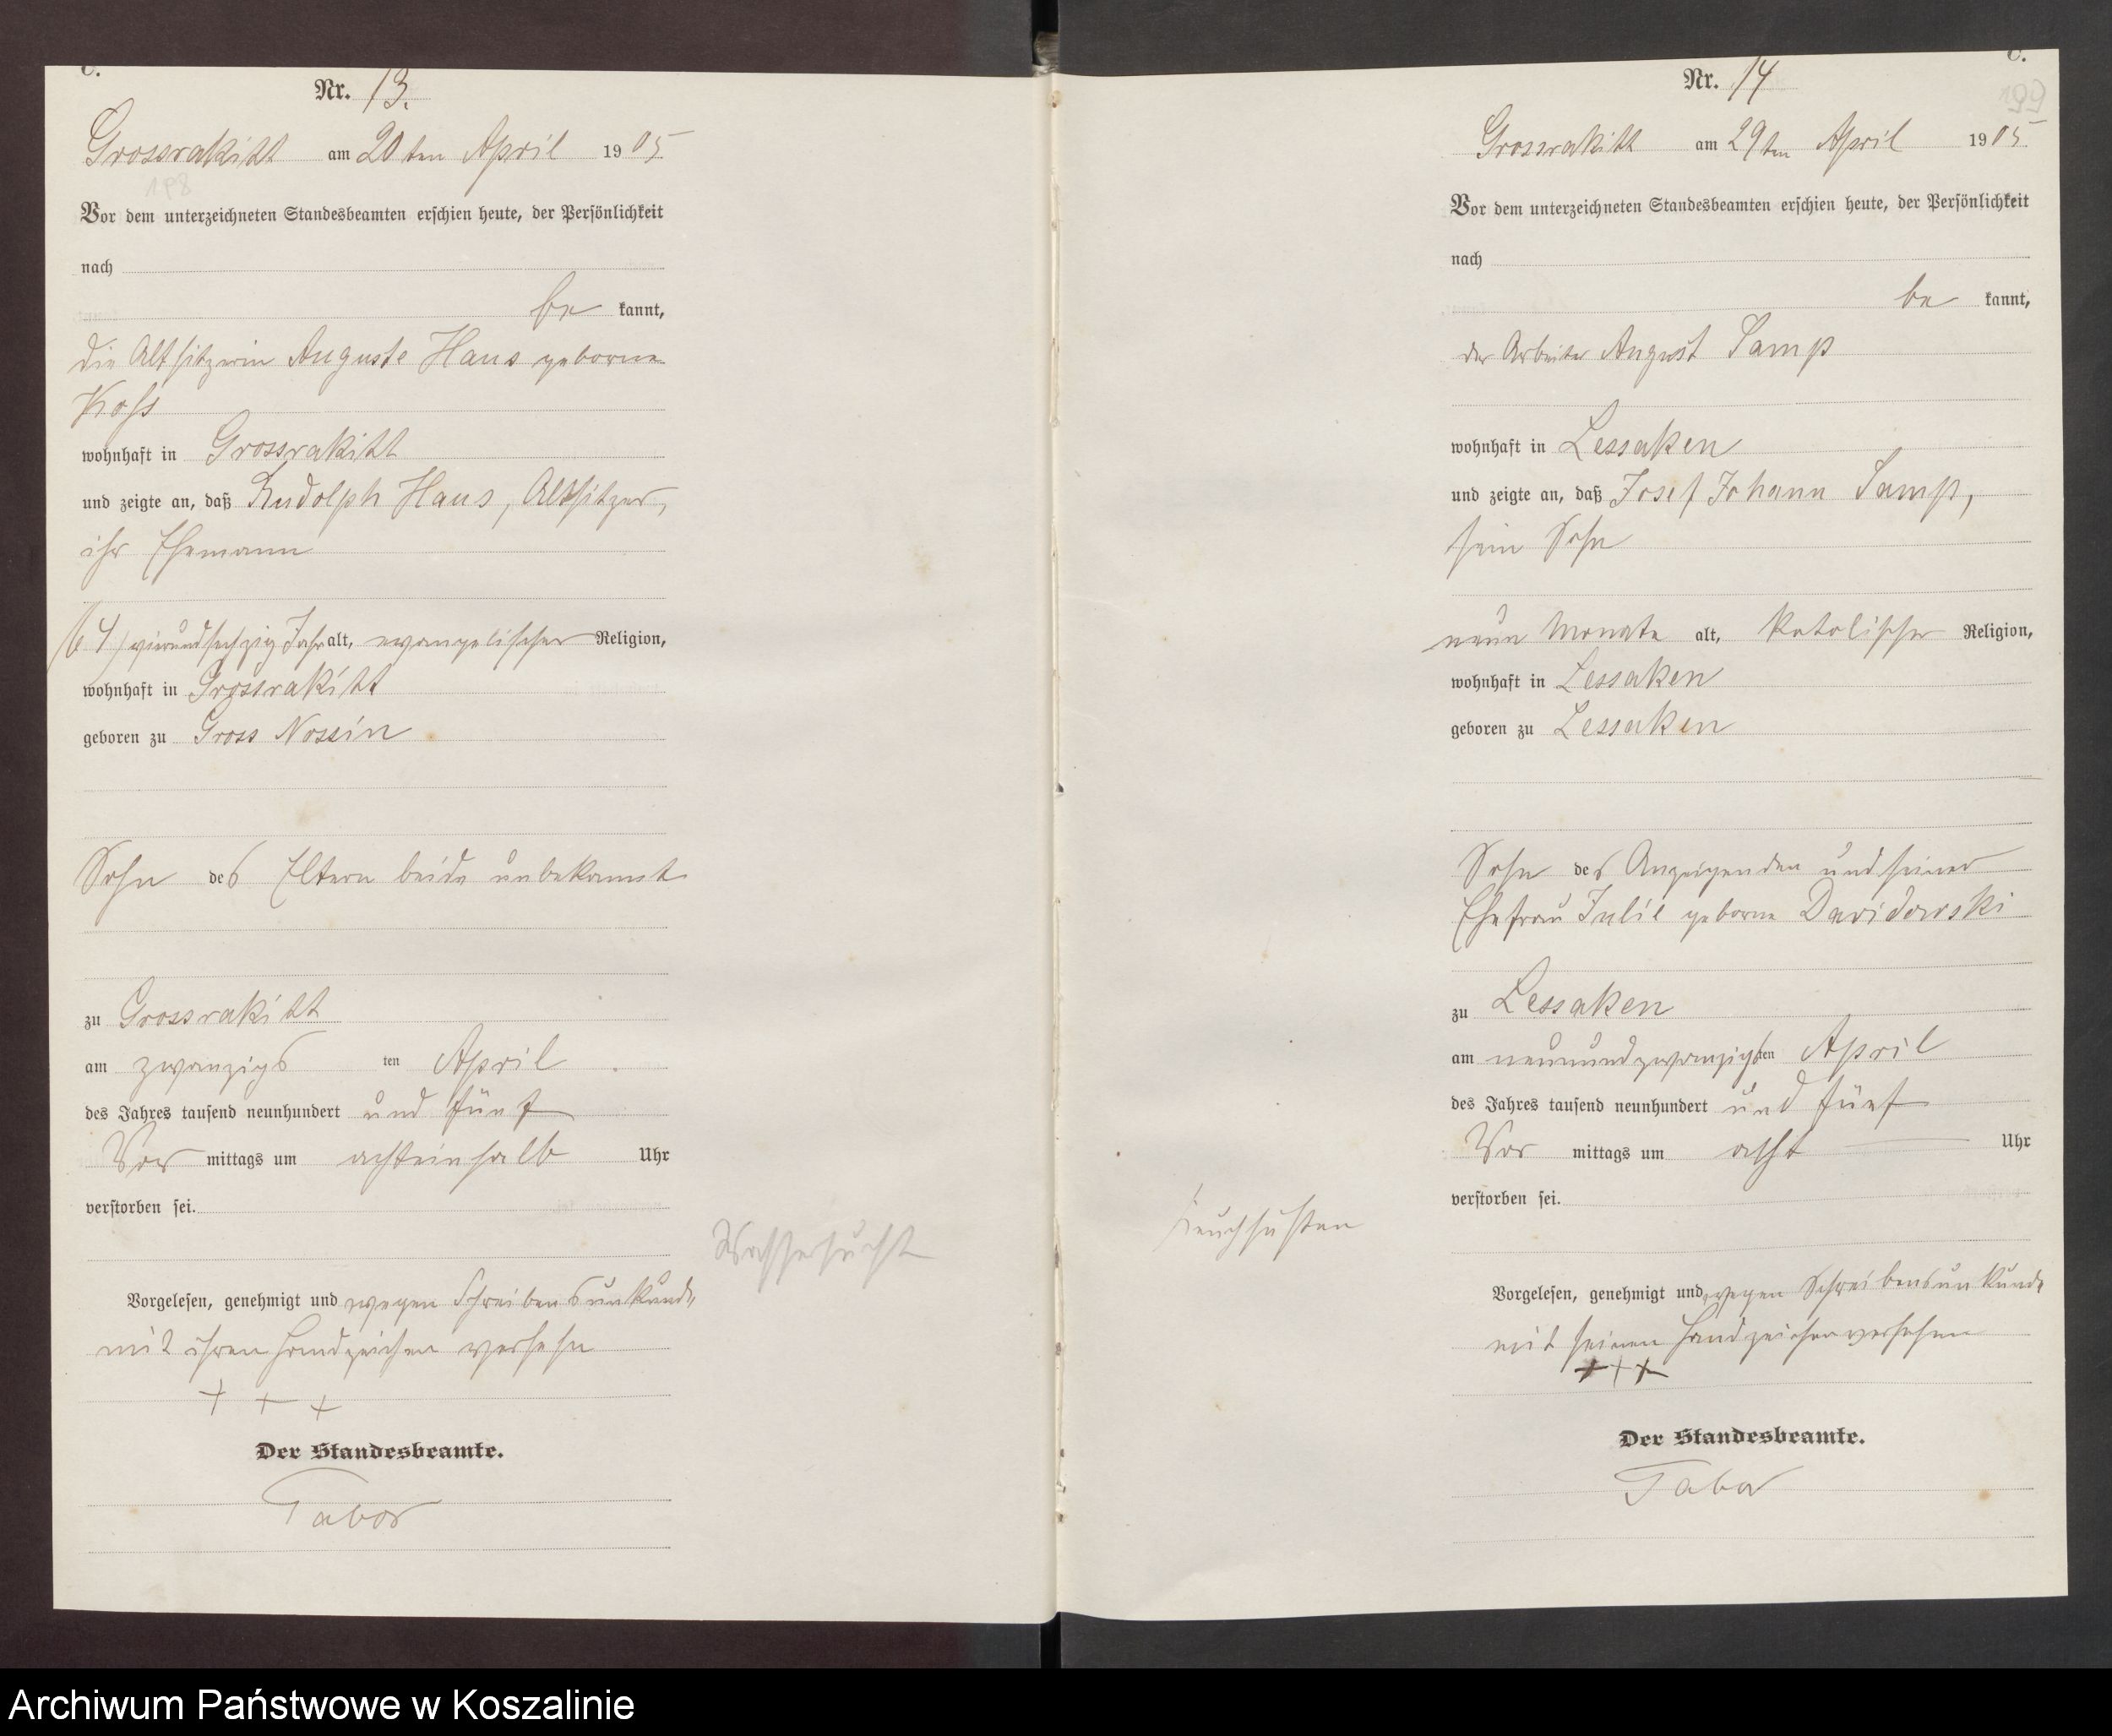 C.
Nr. 13.
Grossrakitt am 20ten April 1905
198
Vor dem unterzeichneten Standesbeamten erschien heute, der Persönlichkeit
nach
be kannt,
die Altsitzerin Auguste Haus geborne
Koss
wohnhaft in Grossrakitt
und zeigte an, daß Rudolph Haus, Altsitzer,
ihr Ehemann
64 / vierundsechzig Jahr alt, evangelischer Religion,
wohnhaft in Grossrakitt
geboren zu Gross Nossin
Sohn des Eltern beide unbekannt
zu Grossrakitt
am zwanzigs ten April
des Jahres tausend neunhundert und fünf
Vor mittags um achteinhalb Uhr
verstorben sei.
Wassersucht
Vorgelesen, genehmigt und wegen Schreibensunkunde
mit ihren Handzeichen versehn
+ + +
Der Standesbeamte.
Tabor
C.
Nr. 14
199
Grossrakitt am 29ten April 1905.
Vor dem unterzeichneten Standesbeamten erschien heute, der Persönlichkeit
nach
be kannt,
der Arbeiter August Samp
wohnhaft in Lessaken
und zeigte an, daß Josef Johann Samp,
sein Sohn
neun Monate alt, katolischer Religion,
wohnhaft in Lessaken
geboren zu Lessaken
Sohn des Anzeigenden und seiner
Ehefrau Julie geborne Davidowski
zu Lessaken
am neunundzwanzigsten April
des Jahres tausend neunhundert und fünf
Vor mittags um acht Uhr
verstorben sei.
Keuchhusten
Vorgelesen, genehmigt und wegen Schreibensunkunde
mit seinen Handzeichen versehen
+++
Der Standesbeamte.
Tabor
Archiwum Państwowe w Koszalinie